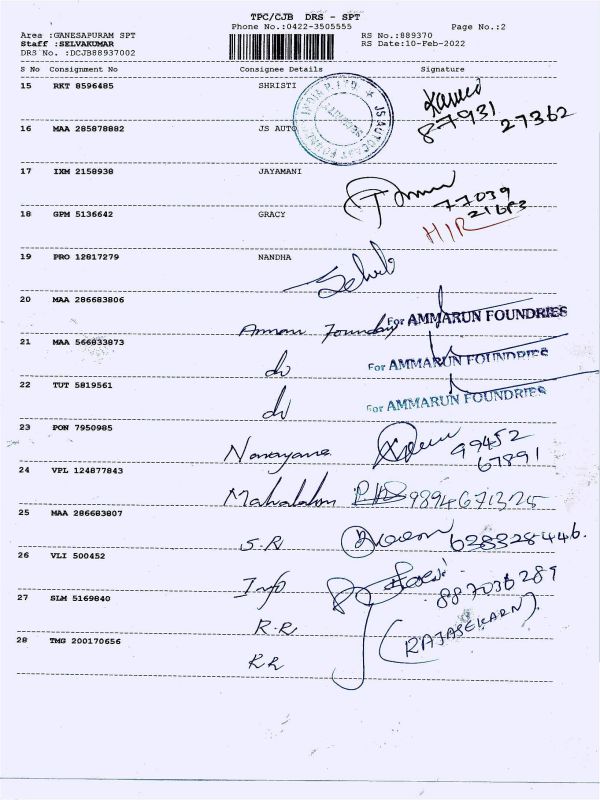 TPC/CJB DRS - SPT
Phone No.:0422-3505555 Page No.:2
Area :GANESAPURAM SPT RS No.:889370
Staff :SELVAKUMAR RS Date:10-Feb-2022
DRS No. :DCJB88937002
S No Consignment No Consignee Details Signature
15 RKT 8596485 SHRISTI
87931 27362
16 MAA 285878882 JS AUTO
17 IXM 2158938 JAYAMANI
77039
18 GPM 5136642 GRACY
HIR
19 PRO 12817279 NANDHA
20 MAA 286683806
For AMMARUN FOUNDRIES
21 MAA 566833873
do For AMMARUN FOUNDRIES
22 TUT 5819561
do For AMMARUN FOUNDRIES
23 PON 7950985
Narayana 99452
67891
24 VPL 124877843
9894671325
25 MAA 286683807
S.R
26 VLI 500452
Info
27 SLM 5169840
R.R (RAJASEKARN)
28 TMG 200170656
RR